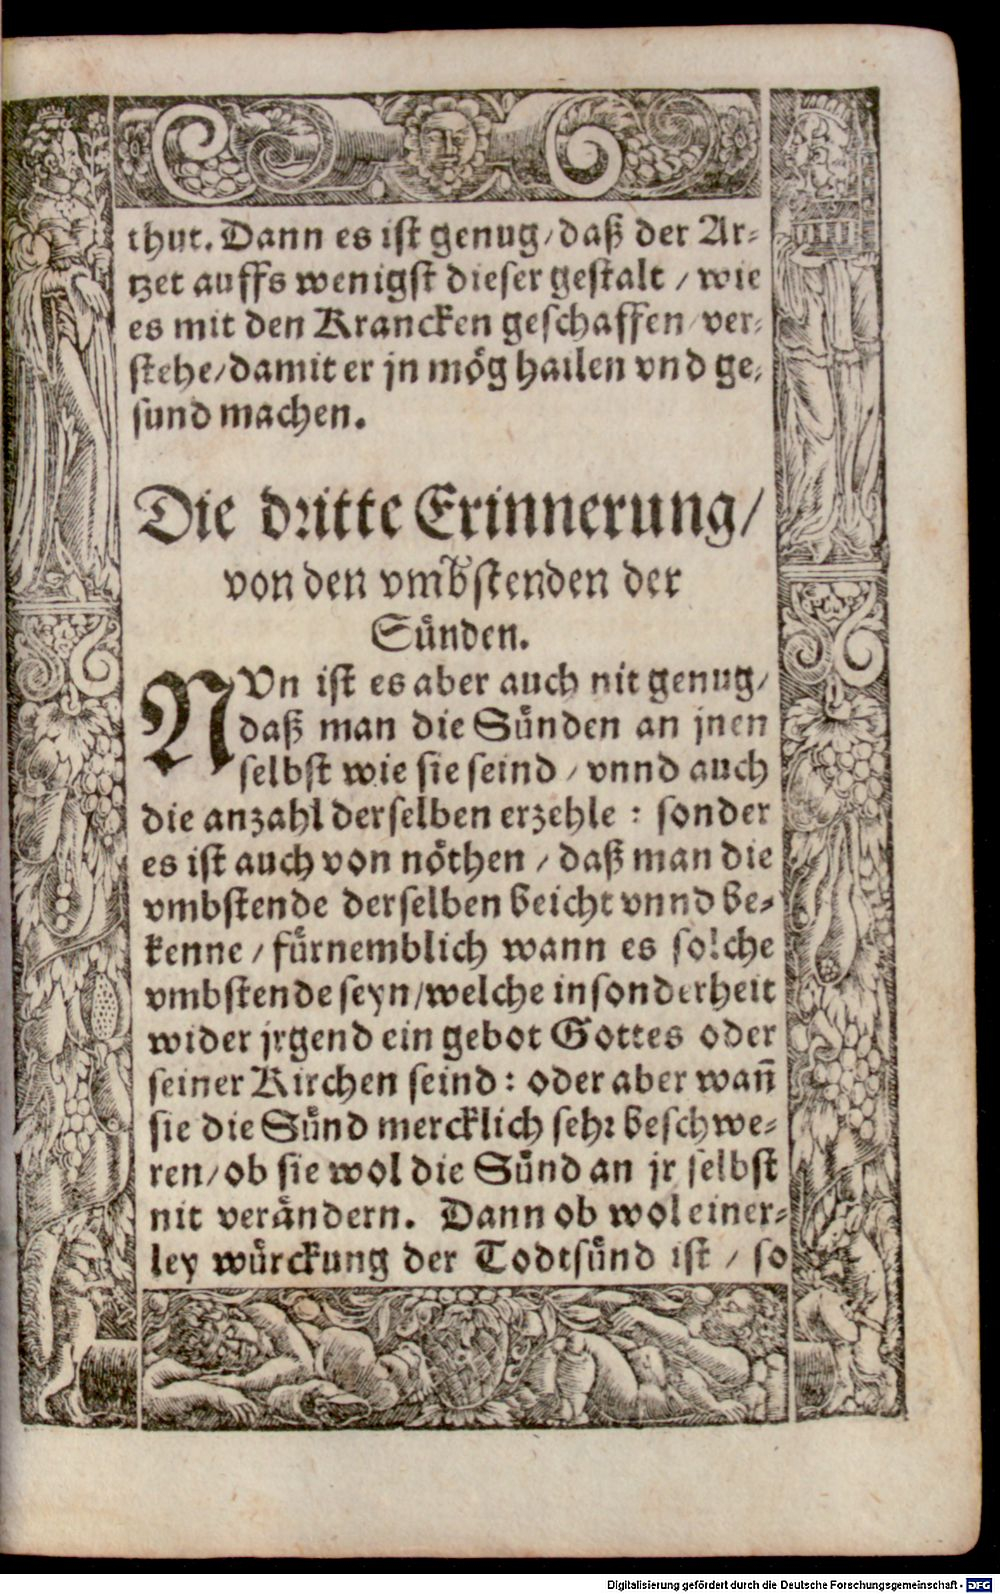 thut. Dann es ist genug/ daß der Ar-
tzet auffs wenigst dieser gestalt / wie
es mit den Krancken geschaffen/ ver-
stehe/ damit er jn mög hailen vnd ge-
sund machen.
Die dritte Erinnerung/
von den vmbstenden der
Sünden.
NVn ist es aber auch nit genug/
daß man die Sünden an jnen
selbst wie sie seind / vnnd auch
die anzahl derselben erzehle : sonder
es ist auch von nöthen / daß man die
vmbstende derselben beicht vnnd be-
kenne / fürnemblich wann es solche
vmbstende seyn/ welche in sonderheit
wider jrgend ein gebot Gottes oder
seiner Kirchen seind : oder aber wañ
sie die Sünd mercklich sehr beschwe-
ren/ ob sie wol die Sünd an jr selbst
nit verändern. Dann ob wol einer-
ley würckung der Todtsünd ist / so
Digitalisierung gefördert durch die Deutsche Forschungsgemeinschaft - DFG